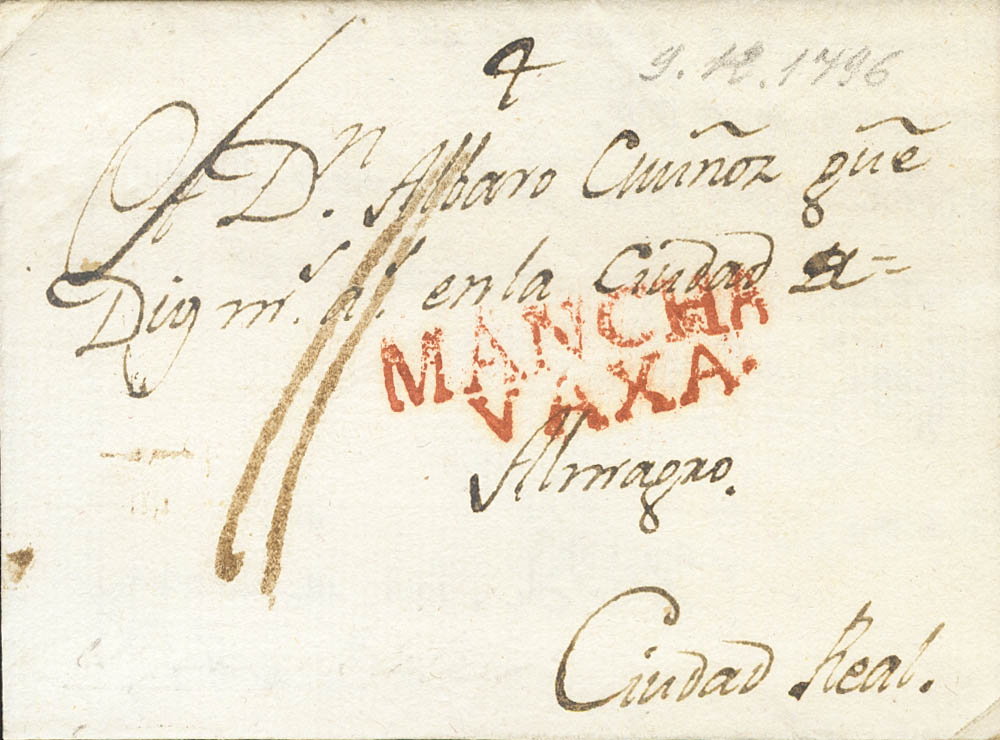 9.12.1796
A Dn. Albaro Muñoz gūe
Dios ms. as. en la Ciudad de=
MANCHA
VAXA.
Almagro.
Ciudad Real.